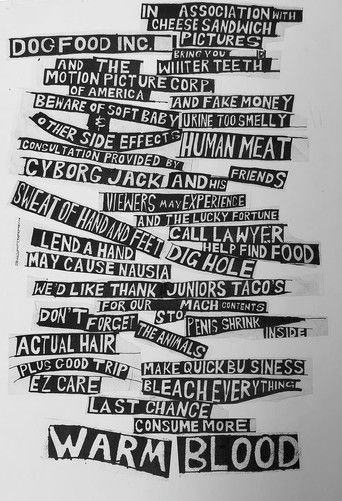 IN ASSOCIATION WITH
CHEESE SANDWICH
DOG FOOD INC. PICTURES
BRING YOU
AND THE WHITER TEETH
MOTION PICTURE CORP
OF AMERICA
BEWARE OF SOFT BABY AND FAKE MONEY
& URINE TOO SMELLY
OTHER SIDE EFFECTS HUMAN MEAT
CONSULTATION PROVIDED BY
CYBORG JACK AND HIS FRIENDS
SWEAT OF HAND AND FEET
VIEWERS MAY EXPERIENCE
AND THE LUCKY FORTUNE
CALL LAWYER
LEND A HAND HELP FIND FOOD
DIG HOLE
MAY CAUSE NAUSIA
WE'D LIKE THANK JUNIORS TACO'S
FOR OUR MACH CONTENTS
DON'T FORGET STO PENIS SHRINK INSIDE
THE ANIMALS
ACTUAL HAIR
PLUS GOOD TRIP MAKE QUICK BUSINESS
EZ CARE BLEACH EVERYTHING
LAST CHANCE
CONSUME MORE
WARM BLOOD